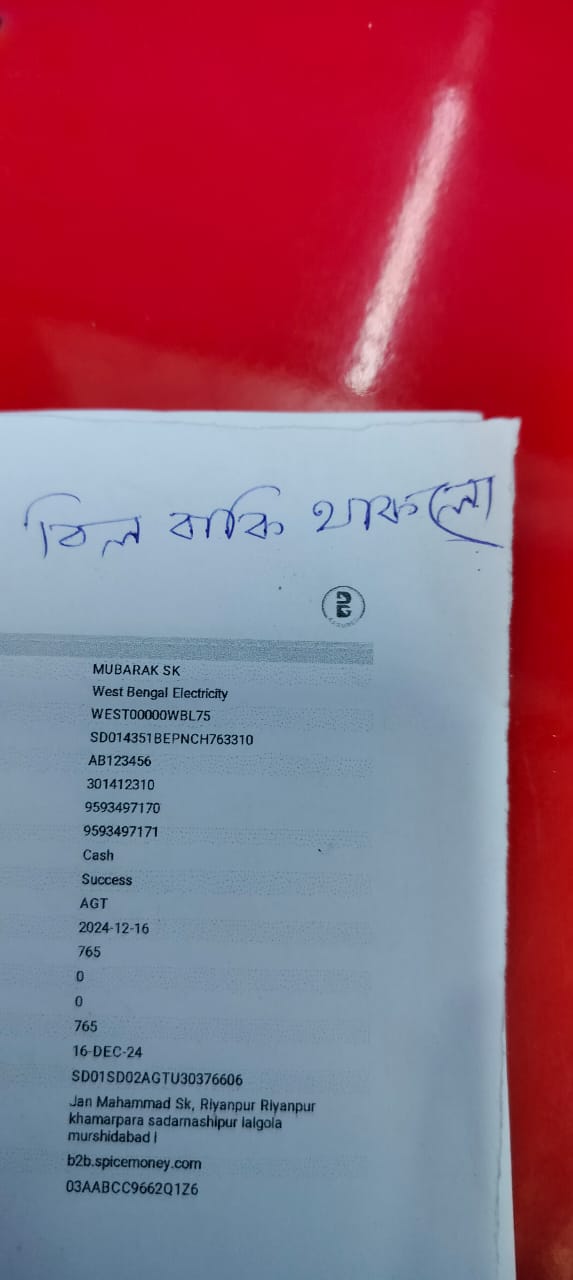 বিল বাকি থাকলো
MUBARAK SK
West Bengal Electricity
WEST00000WBL75
SD014351BEPNCH763310
AB123456
301412310
9593497170
9593497171
Cash
Success
AGT
2024-12-16
765
0
0
765
16-DEC-24
SD01SD02AGTU30376606
Jan Mahammad Sk, Riyanpur Riyanpur
khamarpara sadarnashipur lalgola
murshidabad i
b2b.spicemoney.com
03AABCC9662Q1Z6